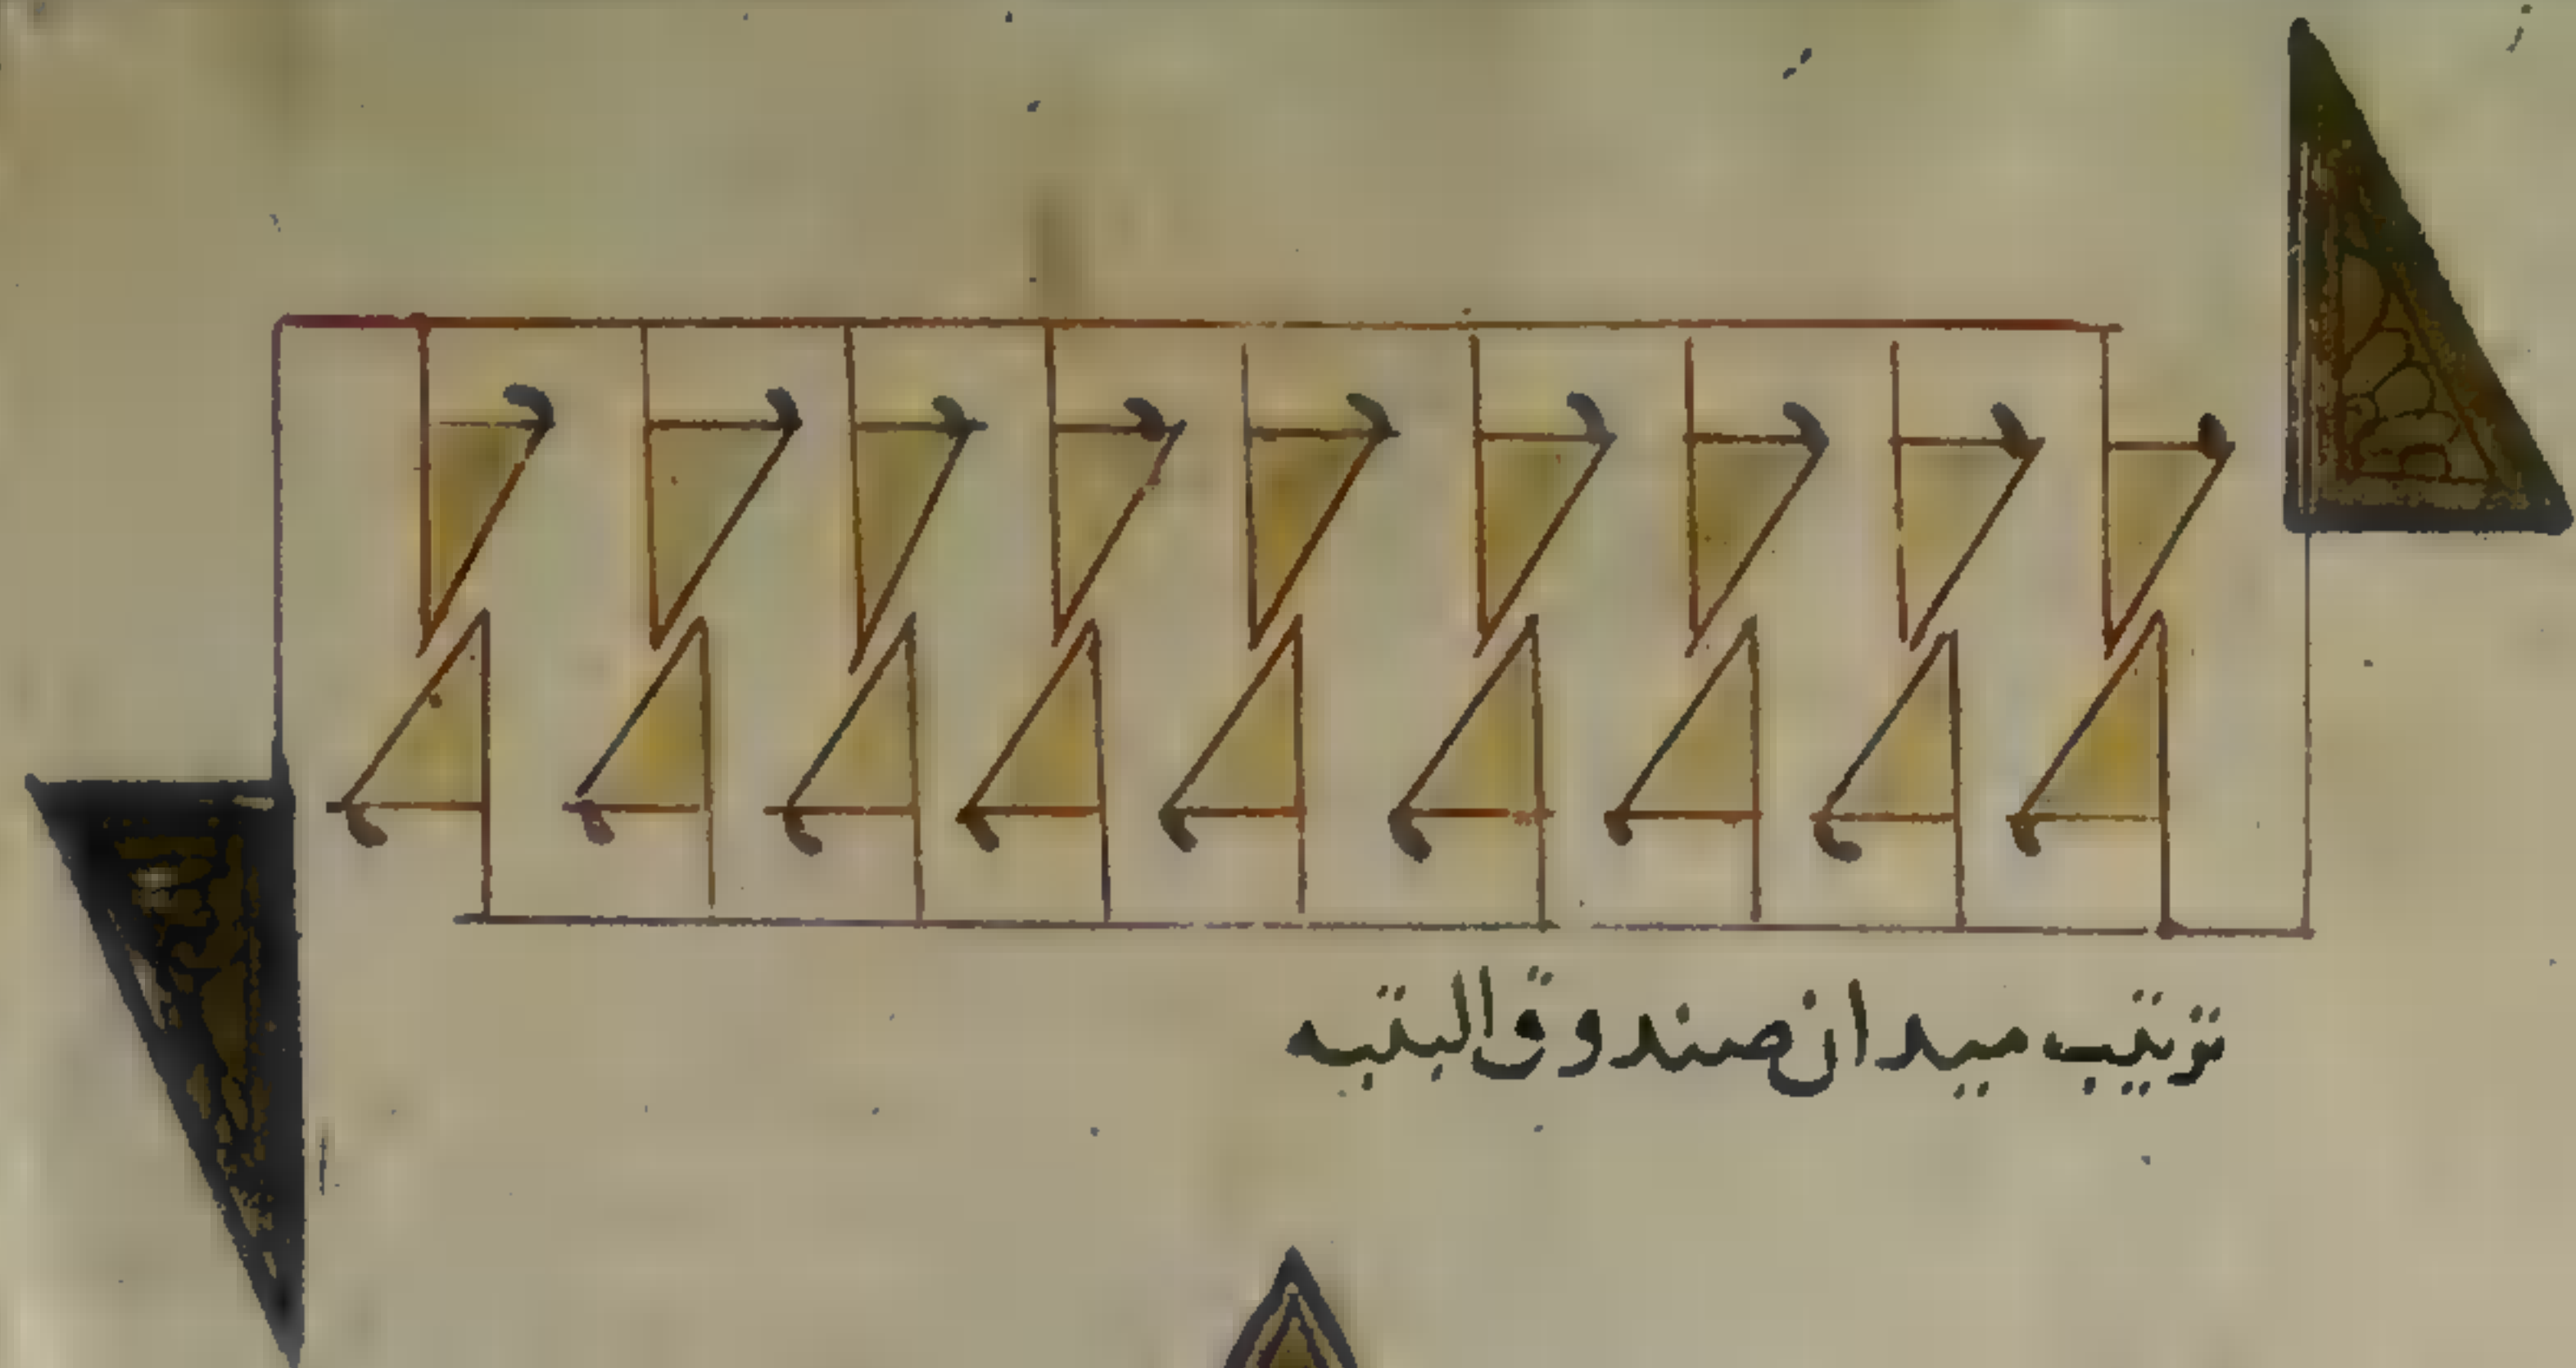 ترتيب ميدان صندوق البتيه